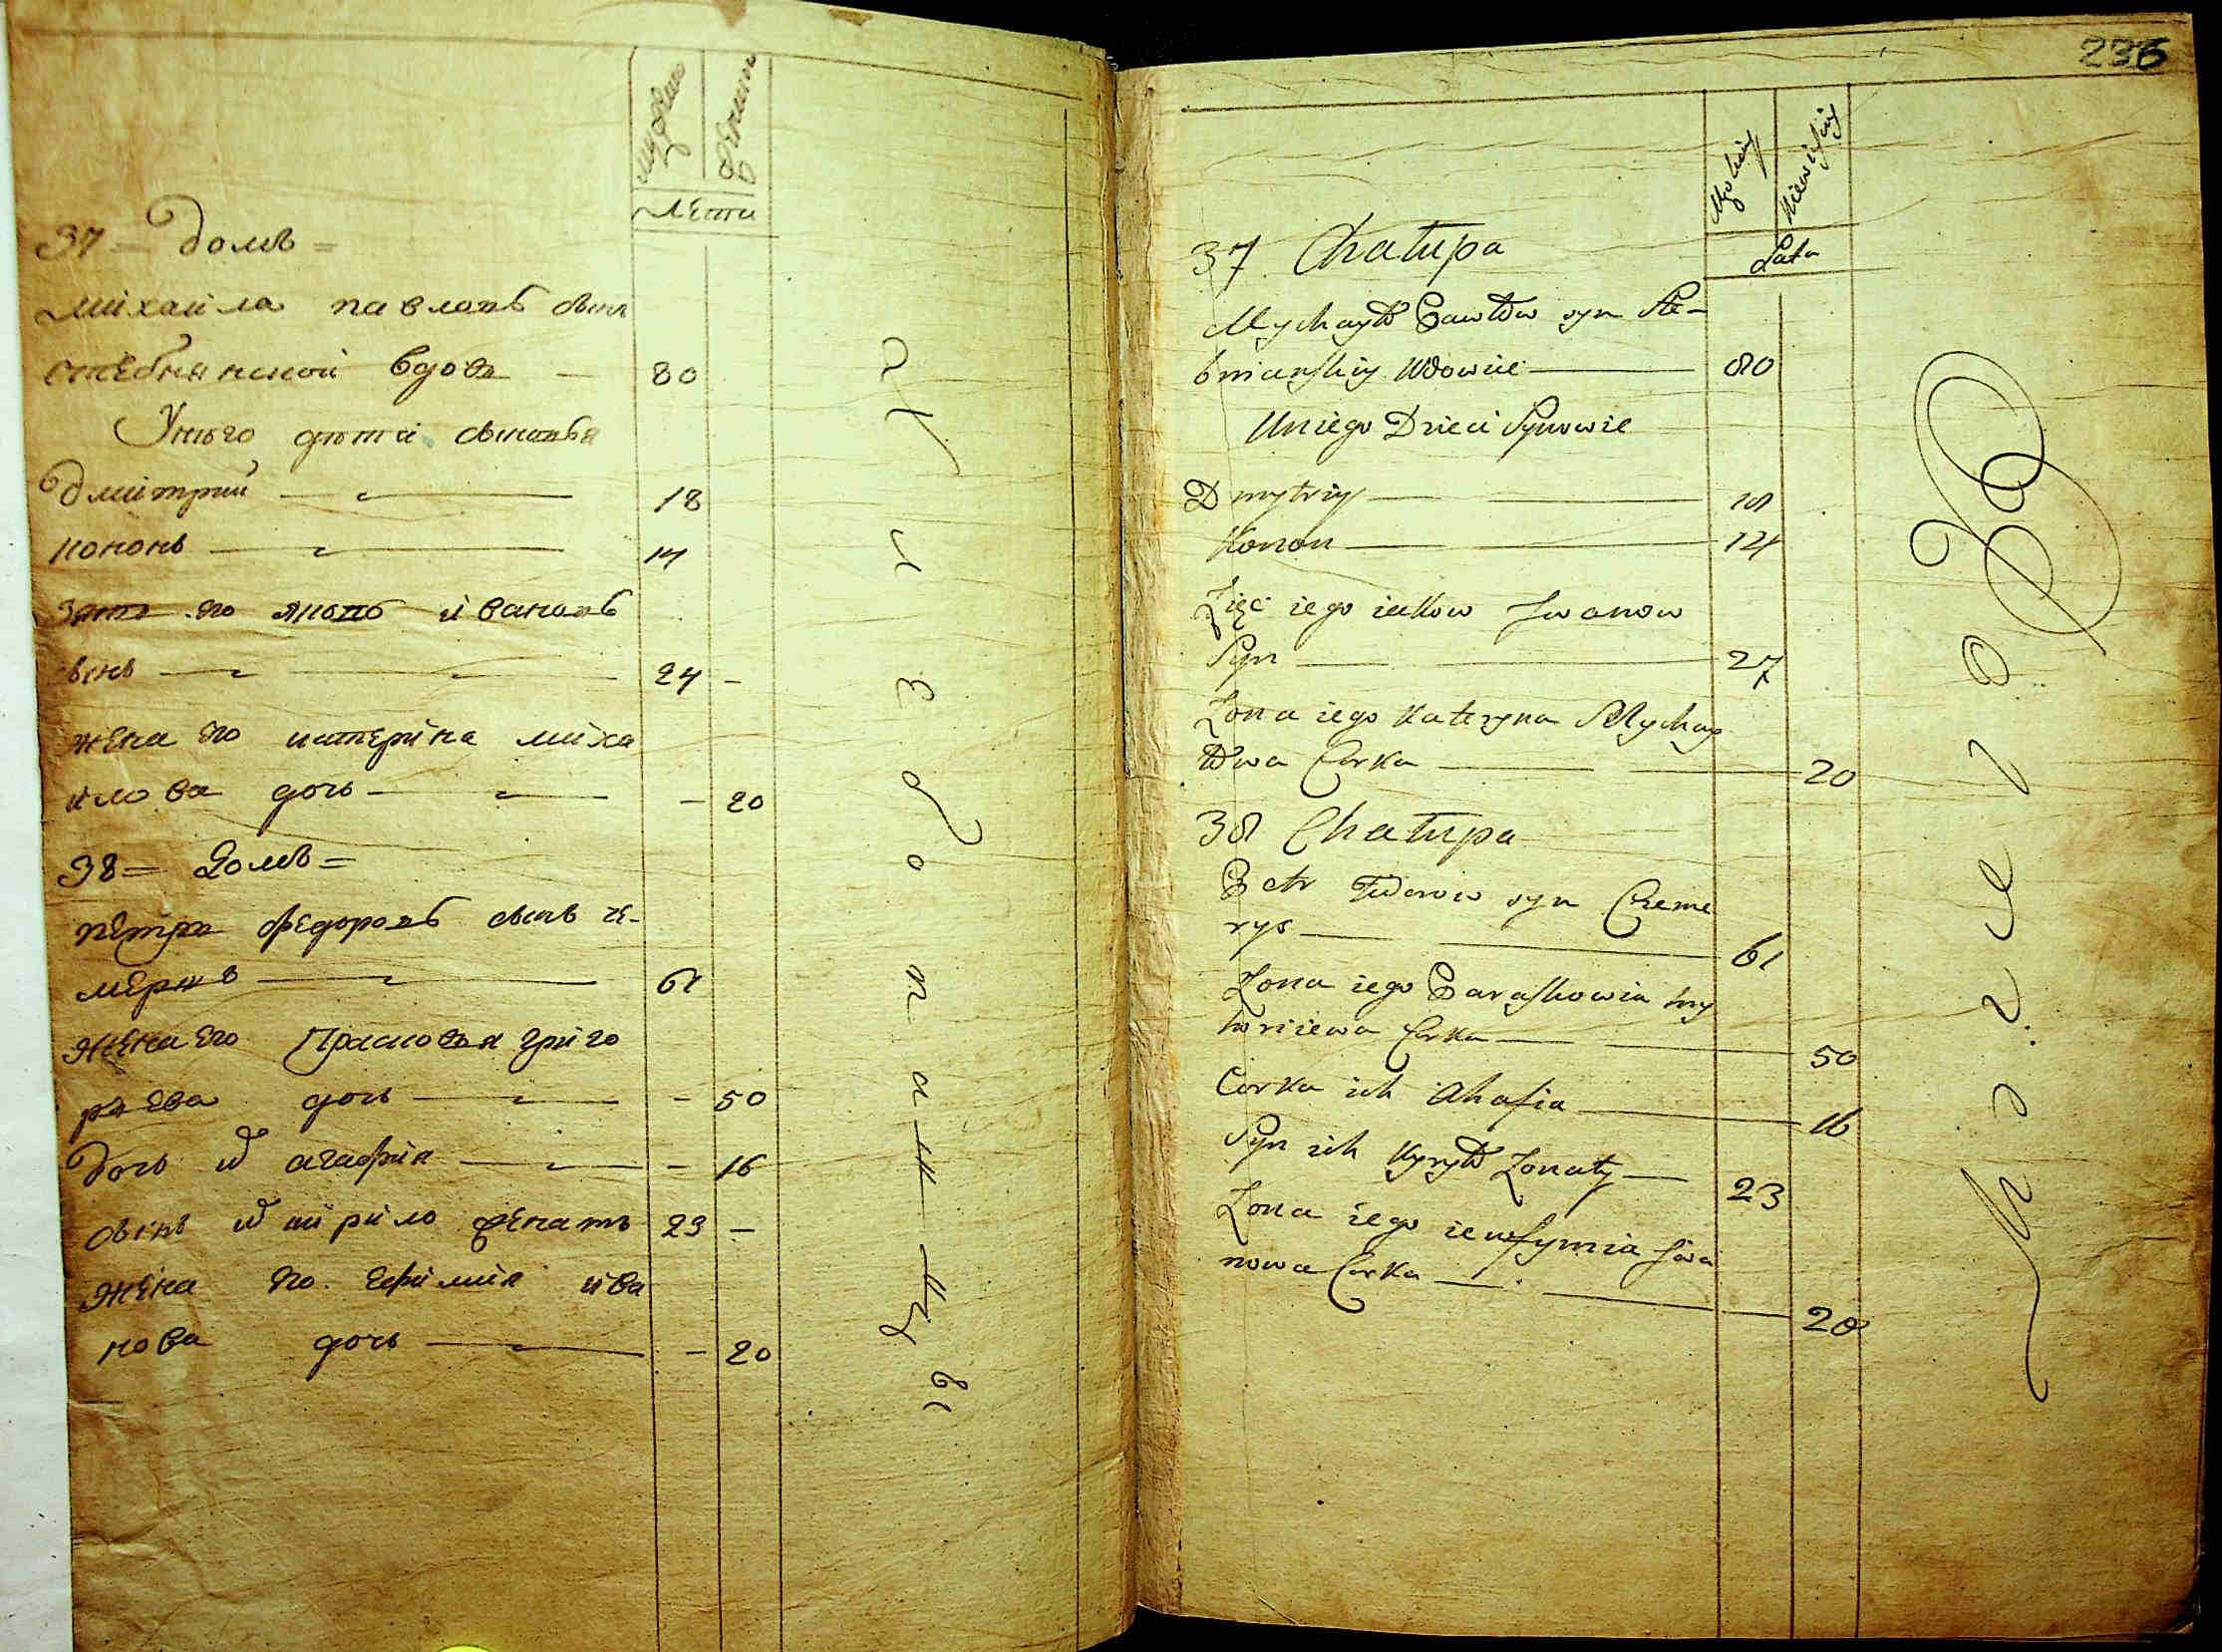 мужеск
женска
лѣта
37 = домъ =
михаила павловъ сынъ
стебнянской вдовъ — 80
У него дѣти сыновья
дмитрий — 18
кононъ — 14
зять его яковъ ивановъ
сынъ — 24 -
жена его катерина миха
илова дочь — - 20
38 = Домъ =
петръ федоровъ сынъ че-
меръсъ — 61
жена его Прасковья григо
рьева дочь — - 50
дочь их агафия — - 16
сынъ их кирило женатъ 23 -
жена его ефимия ива
нова дочь — - 20
236
Męsczyzny
Niewiasty
Lata
37 Chałupa
Mychayło Pawłów syn Ste-
bnianskiy Wdowiec — 80
U niego Dzieci Synowie
Dmytriy — 18
Konon — 14
Zięć iego iakow Iwanow
Syn — 27
Żona iego Kateryna Mychay
łowa Corka — 20
38 Chałupa
Petr Fedorow syn Czeme
rys — 61
Żona iego Paraskowia Hry
horiiewa Corka — 50
Corka ich Ahafia — 16
Syn ich Kyryło Żonaty — 23
Żona iego iewfymia Iwa
nowa Corka — 20